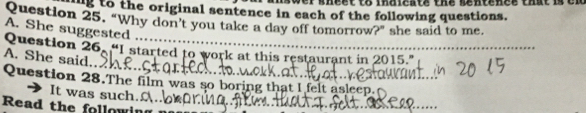 to the original sentence in each of the following questions.
Question 25. "Why don't you take a day off tomorrow?" she said to me.
A. She suggested ........................
Question 26. "I started to work at this restaurant in 2015."
A. She said...She started to work at that restaurant in 2015
Question 28.The film was so boring that I felt asleep.
→ It was such.a..boring film that I felt asleep......
Read the following